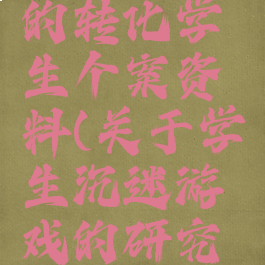 的转化学
生个案资
料(关于学
生沉迷游
戏的研究